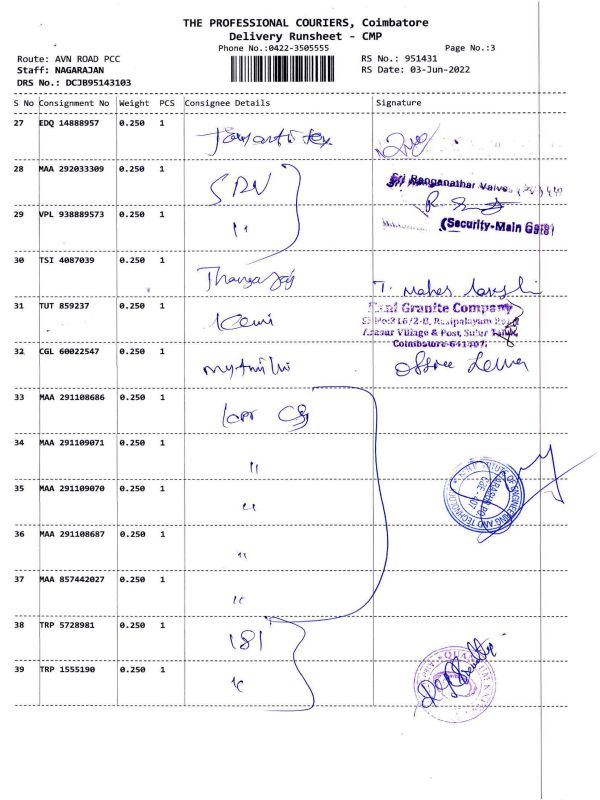 THE PROFESSIONAL COURIERS, Coimbatore
Delivery Runsheet - CMP
Phone No.:0422-3505555 Page No.:3
Route: AVN ROAD PCC RS No.: 951431
Staff: NAGARAJAN RS Date: 03-Jun-2022
DRS No.: DCJB95143103
S No Consignment No Weight PCS Consignee Details Signature
27 EDQ 14888957 0.250 1
28 MAA 292033309 0.250 1 SRN Sri Ranganathar Valves
29 VPL 938889573 0.250 1 " (Security-Main Gate)
30 TSI 4087039 0.250 1 Thangaraj
31 TUT 859237 0.250 1 Granite Company
Rasipalayam
Arasur Village & Post, Sulur Taluk,
Coimbatore-641407.
32 CGL 60022547 0.250 1
33 MAA 291108686 0.250 1
34 MAA 291109071 0.250 1 "
35 MAA 291109070 0.250 1 "
OF ENGINEERING AND TECHNOLOGY
36 MAA 291108687 0.250 1 "
37 MAA 857442027 0.250 1 "
38 TRP 5728981 0.250 1 181
39 TRP 1555190 0.250 1 "